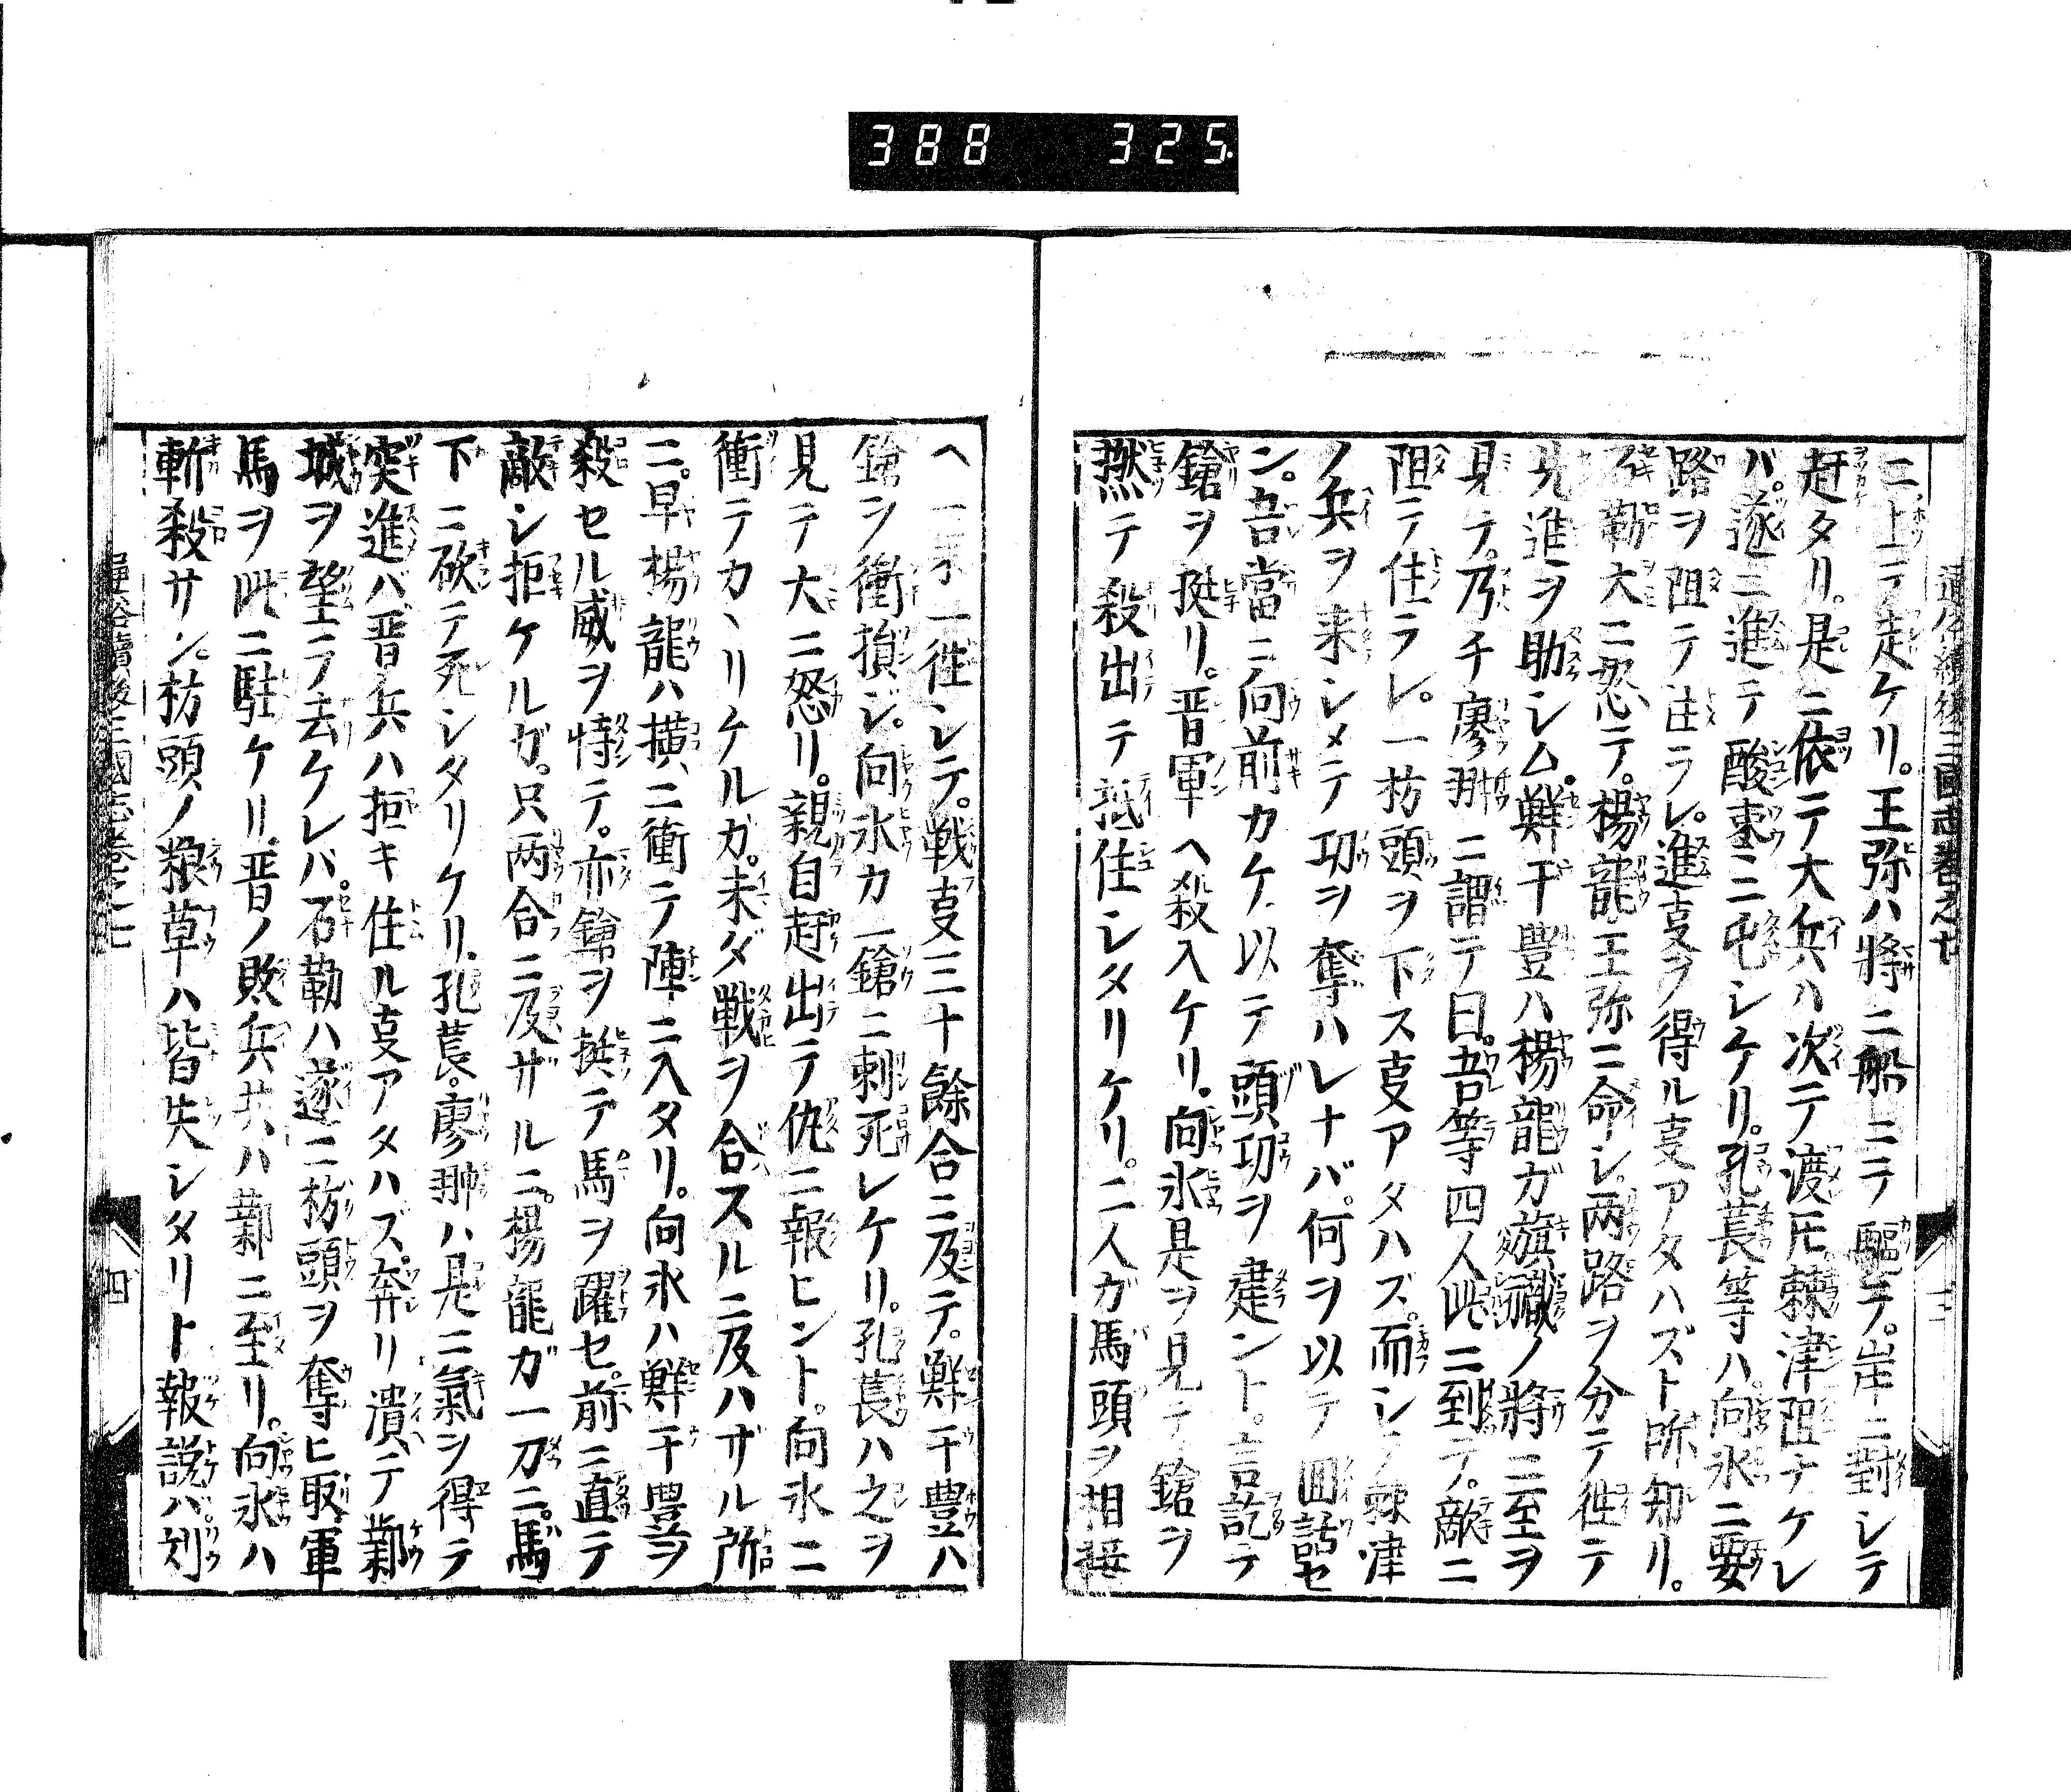 388 325
通俗續後三國志巻之七
三
ニ上テ走ケリ。王弥ハ將ニ船ニテ驅テ。岸ニ對シテ
赶タリ。是ニ依テ大兵ハ次テ渡圧棘津阻ナケレ
バ。遂ニ進テ酸棗ニ屯シケリ。孔萇等ハ向氷ニ要
路ヲ阻テ住ラレ。進叓ヲ得ル叓アタハズト所知リ。
石勒大ニ怒テ。楊龍王弥ニ命シ。两路ヲ分テ徃テ
先進ヲ助シム。鮮于豊ハ楊龍ガ旗幟ノ將ニ至ヲ
見テ。乃チ廖翀ニ謂テ曰。吾等四人此ニ到テ。敵ニ
阻テ住ラレ。一枋頭ヲ下ス叓アタハズ。而シテ棘津
ノ兵ヲ来シメテ功ヲ奪ハレナバ。何ヲ以テ回話セ
ン。吾當ニ向前カケ以テ頭功ヲ建ント。言訖テ
鎗ヲ挺リ。晋軍ヘ殺入ケリ。向氷是ヲ見テ鎗ヲ
撚テ殺出テ抵住シタリケリ。二人ガ馬頭ヲ相接
ヘ一来一徃シテ。戦叓三十餘合ニ及テ。鮮于豊ハ
鎗ヲ衝損ジ。向氷カ一鎗ニ刺死レケリ。孔萇ハ之ヲ
見テ大ニ怒リ。親自赶出テ仇ニ報ヒント。向氷ニ
衝テカヽリケルガ。未ダ戰ヲ合スルニ及ハザル所
ニ。早楊龍ハ横ニ衝テ陣ニ入タリ。向氷ハ鮮于豊ヲ
殺セル威ヲ恃テ。亦鎗ヲ挺テ馬ヲ躍セ。前ニ直テ
敵シ拒ケルガ。只两合ニ及ザルニ。楊龍ガ一刀ニ。馬
下ニ砍テ死シタリケリ。孔萇。廖翀ハ是ニ氣ヲ得テ
突進バ晋兵ハ拒キ住ル叓アタハズ。奔リ潰テ鄴
城ヲ望ニテ去ケレバ。石勒ハ遂ニ枋頭ヲ奪ヒ取。軍
馬ヲ此ニ駐ケリ。晋ノ敗兵共ハ鄴ニ至リ。向氷ハ
斬殺サン。枋頭ノ粮草ハ皆失シタリト報説ハ刘
通俗續後三國志巻之七
四